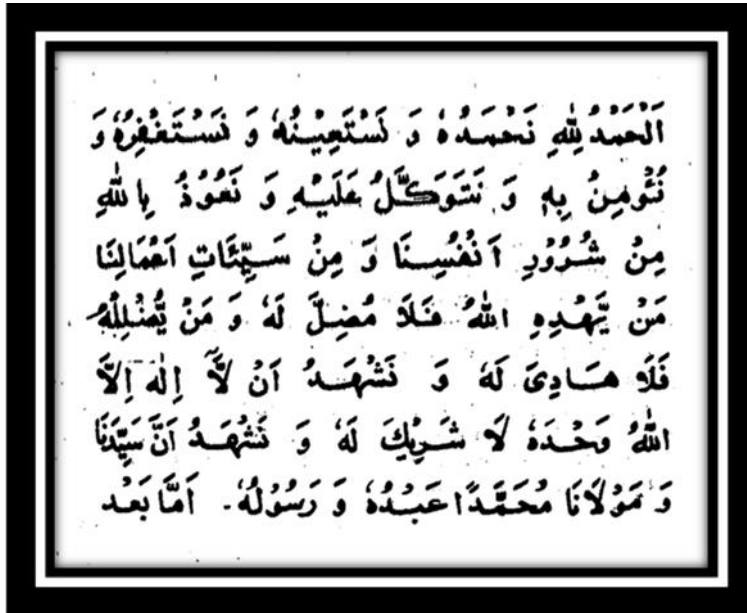 اَلْحَمْدُ لِلّٰهِ نَحْمَدُهٗ وَ نَسْتَعِيْنُهٗ وَ نَسْتَغْفِرُهٗ وَ
نُئْومِنُ بِهٖ وَ نَتَوَكَّلُ عَلَيْهِ وَ نَعُوْذُ بِاللّٰهِ
مِنْ شُرُوْرِ اَنْفُسِنَا وَ مِنْ سَيِّئَاتِ اَعْمَالِنَا
مَنْ يَّهْدِهِ اللّٰهُ فَلَا مُضِلَّ لَهٗ وَ مَنْ يُّضْلِلْهُ
فَلَا هَادِىَ لَهٗ وَ نَشْهَدُ اَنْ لَّآ اِلٰهَ اِلَّا
اللّٰهُ وَحْدَهٗ لَا شَرِيْكَ لَهٗ وَ نَشْهَدُ اَنَّ سَيِّدَنَا
وَ مَوْلَانَا مُحَمَّدًا عَبْدُهٗ وَ رَسُوْلُهٗ۔ اَمَّا بَعْد